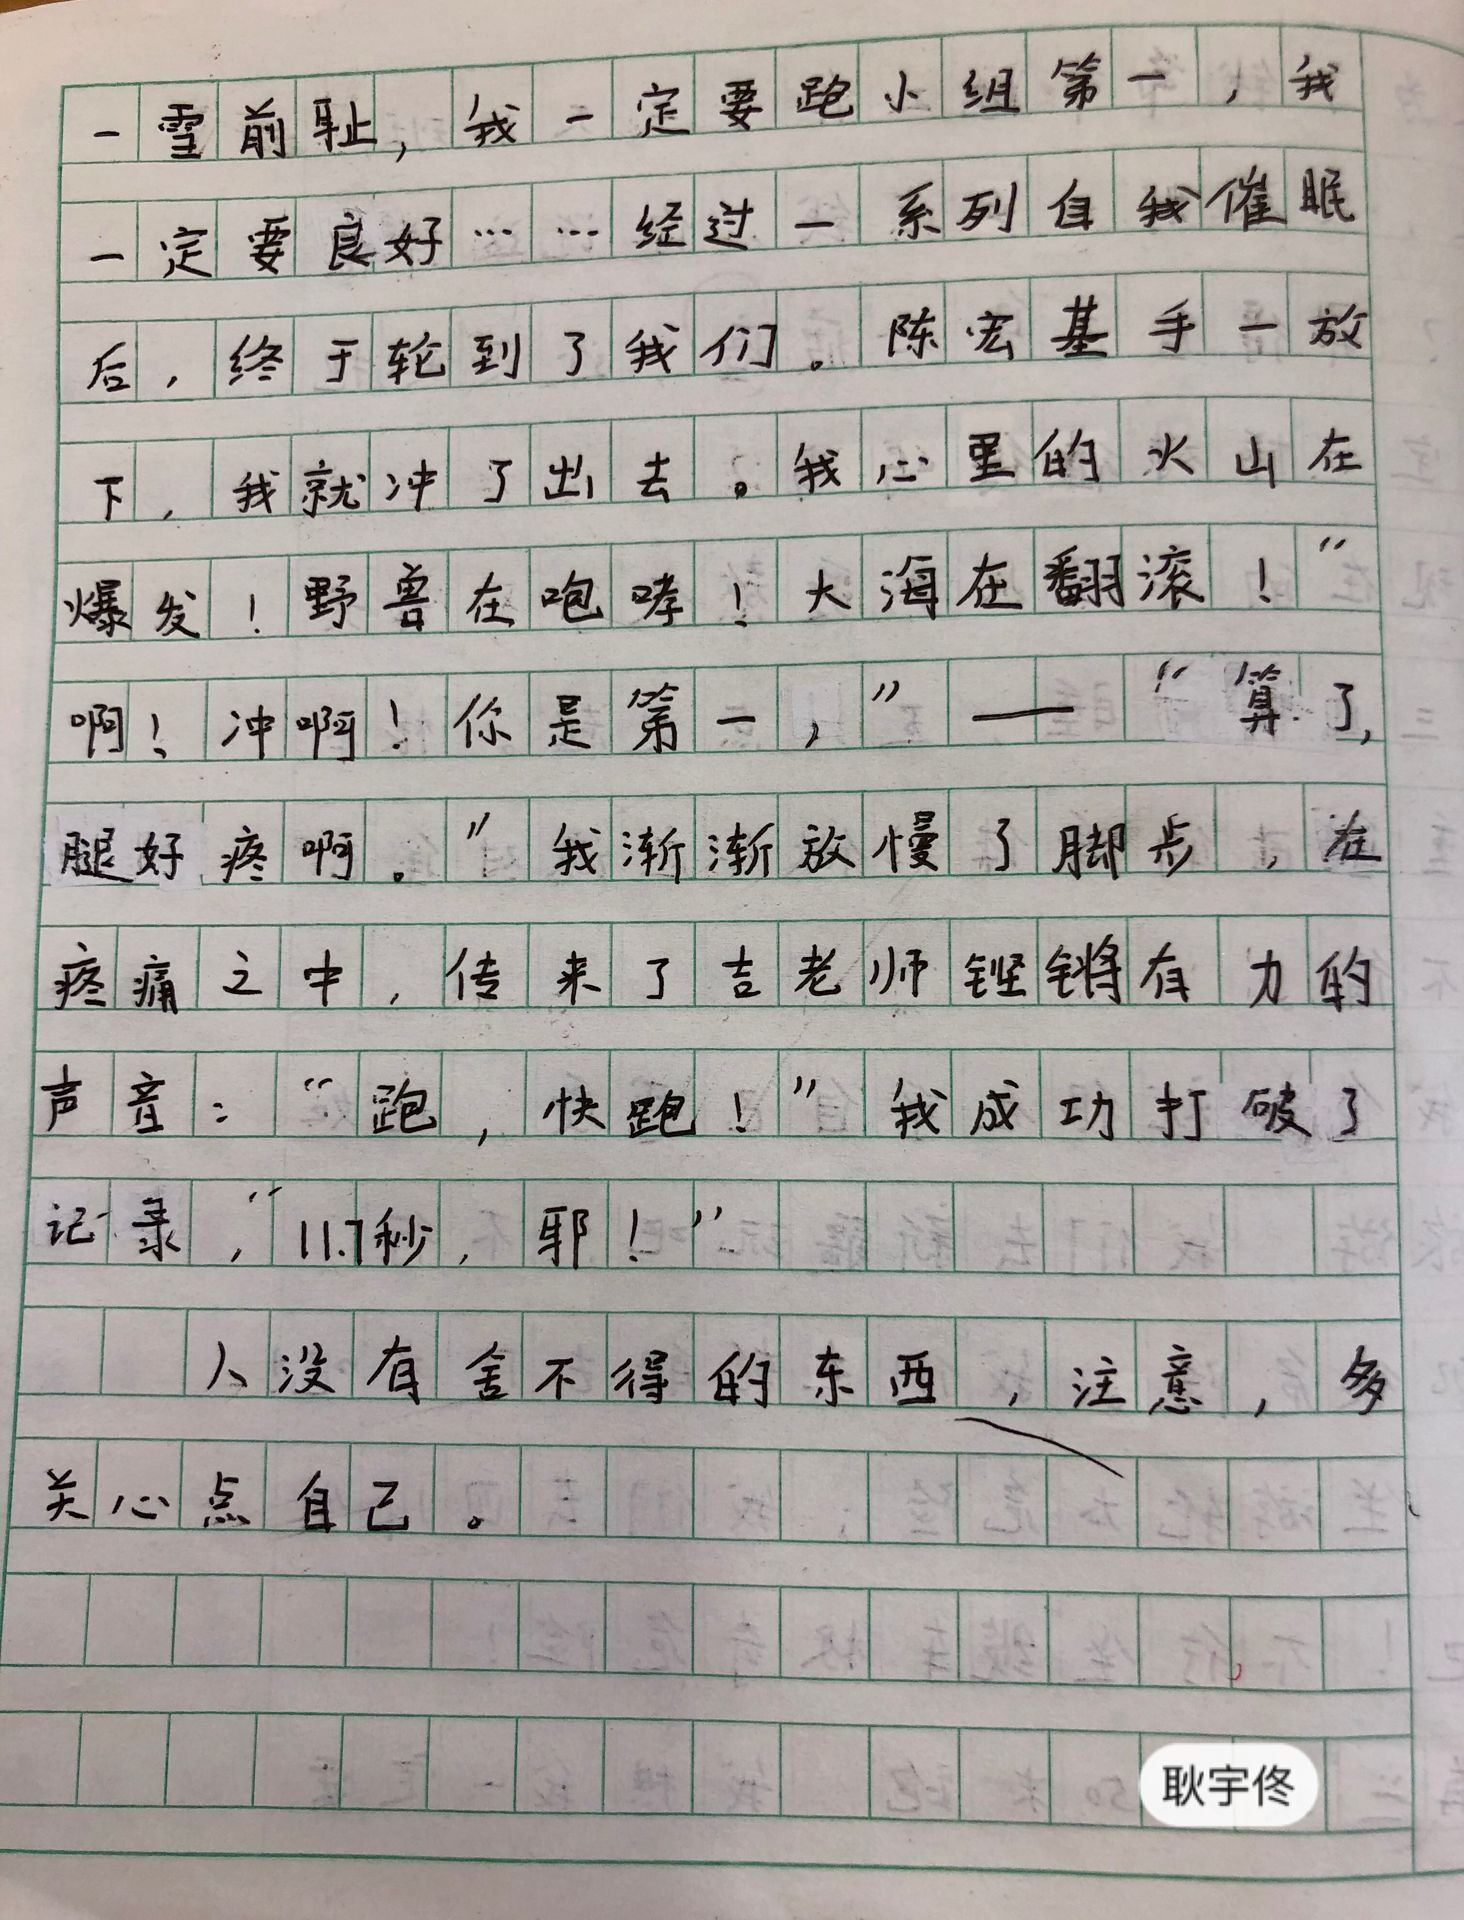 一雪前耻，我一定要跑小组第一，我
一定要良好……经过一系列自我催眠
后，终于轮到了我们。陈宏基手一放
下，我就冲了出去。我心里的火山在
爆发！野兽在咆哮！大海在翻滚！“
啊！冲啊！你是第一，”——“算了，
腿好疼啊。”我渐渐放慢了脚步，在
疼痛之中，传来了吉老师铿锵有力的
声音：“跑，快跑！”我成功打破了
记录，“11.7秒，耶！”
人没有舍不得的东西，注意，多
关心点自己。
耿宇佟